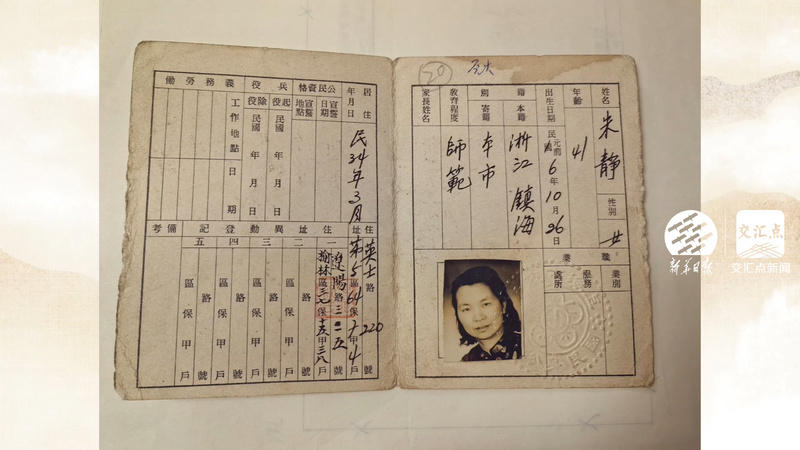 20
姓名 朱靜 性別 女
年齡 41
出生日期 民國元前6年10月26日
籍別 本籍 浙江鎮海
寄籍 本市
教育程度 師範
家長姓名
職業 業別
服務處所
居住年月日 民34年3月
公民資格 宣誓日期
宣誓地點
兵役 起役 民國 年 月 日
除役 民國 年 月 日
義務勞働 工作地點 日期
住址 英士路220號
第5區64保十甲4戶
住址異動登記
一 遼陽路三一五號
榆林區三七保十五甲三八戶
二 路 號
區 保 甲 戶
三 路 號
區 保 甲 戶
四 路 號
區 保 甲 戶
五 路 號
區 保 甲 戶
備考
新华日报
交汇点
交汇点新闻